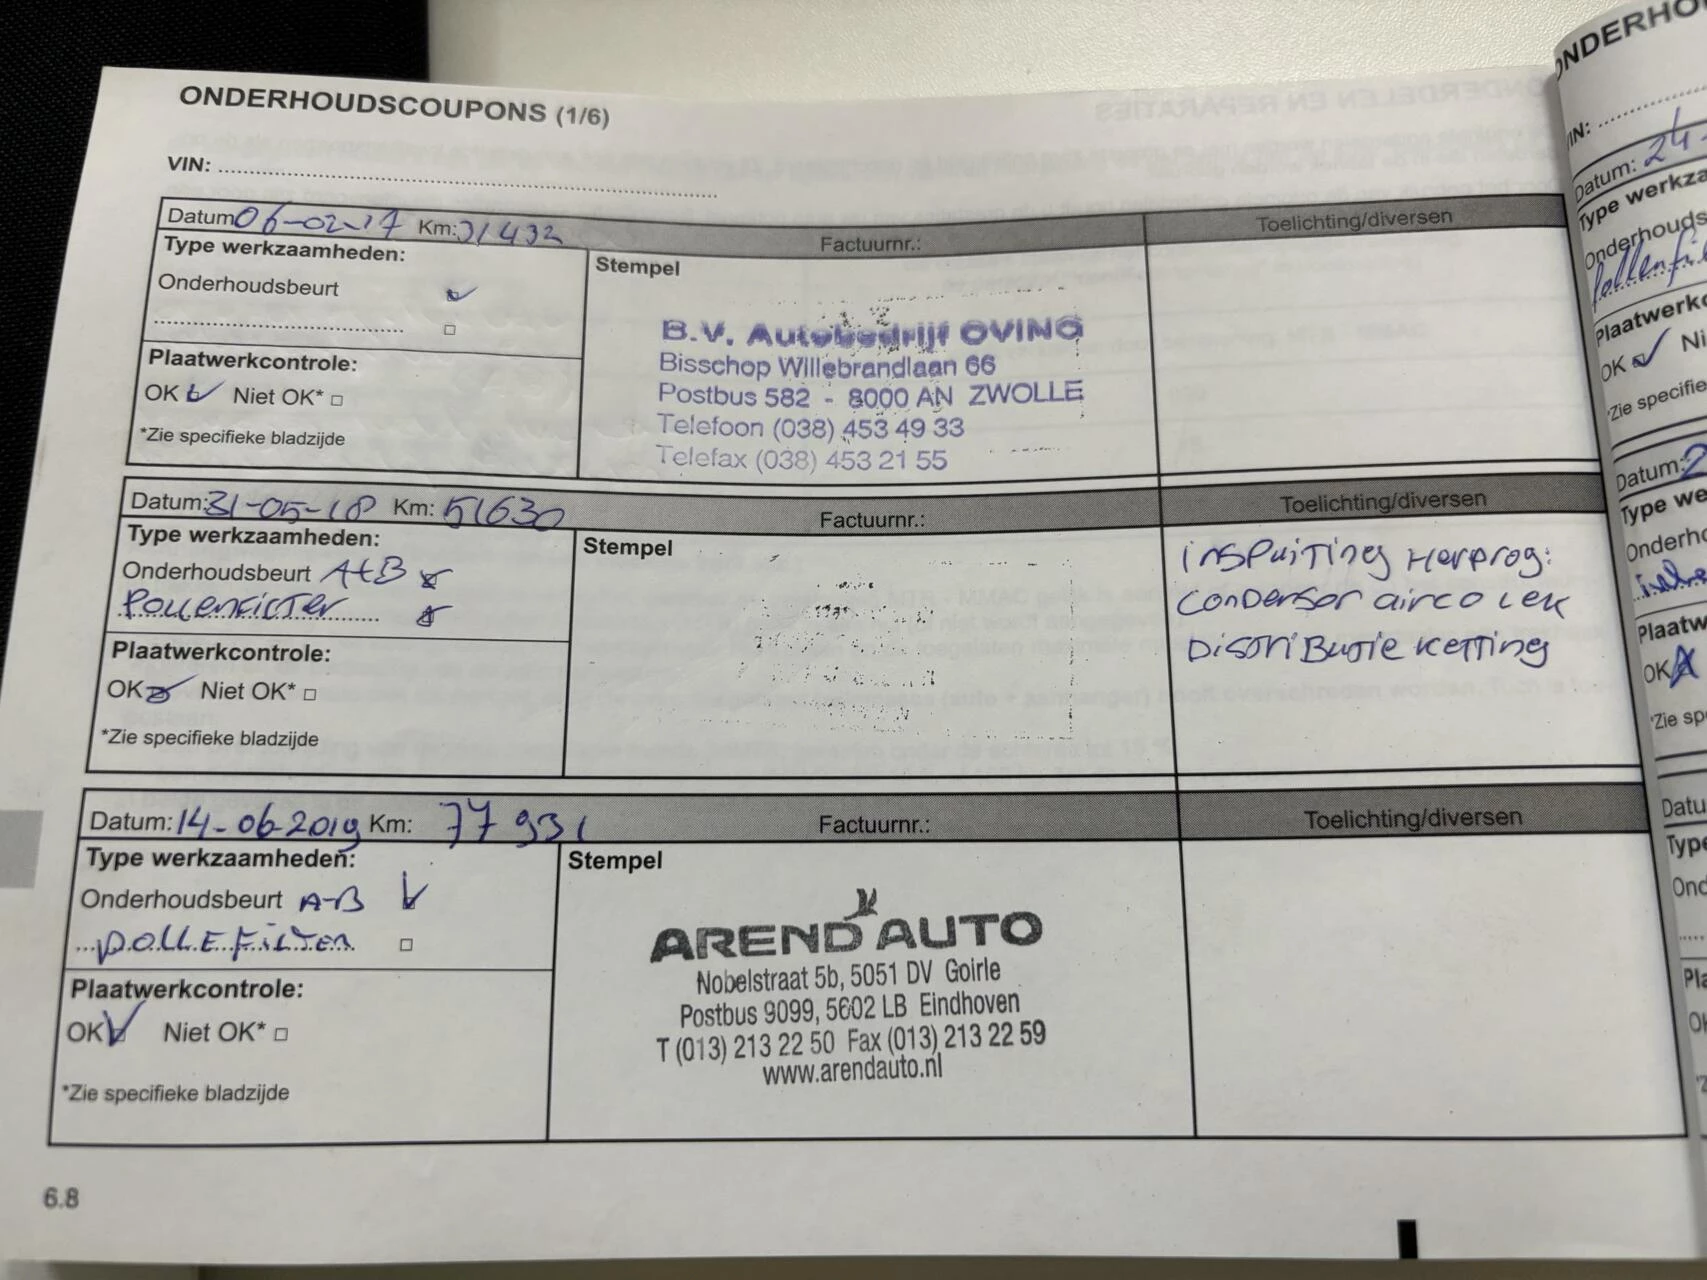 ONDERHOUDSCOUPONS (1/6)
VIN:
Datum 06-02-17 Km: 31432 Factuurnr.: Toelichting/diversen
Type werkzaamheden:
Stempel
Onderhoudsbeurt
Plaatwerkcontrole:
OK Niet OK*
*Zie specifieke bladzijde
B.V. Autobedrijf OVING
Bisschop Willebrandlaan 66
Postbus 582 - 8000 AN ZWOLLE
Telefoon (038) 453 49 33
Telefax (038) 453 21 55
Datum: 31-05-18 Km: 51630 Factuurnr.: Toelichting/diversen
Type werkzaamheden:
Stempel
Onderhoudsbeurt A+B
Pollenfilter
Plaatwerkcontrole:
OK Niet OK*
*Zie specifieke bladzijde
inspuiting Herprog:
Condensor airco lek
Distributie ketting
Datum: 14-06-2019 Km: 77931 Factuurnr.: Toelichting/diversen
Type werkzaamheden:
Stempel
Onderhoudsbeurt A-B
pollefilter
Plaatwerkcontrole:
OK Niet OK*
*Zie specifieke bladzijde
AREND AUTO
Nobelstraat 5b, 5051 DV Goirle
Postbus 9099, 5602 LB Eindhoven
T (013) 213 22 50 Fax (013) 213 22 59
www.arendauto.nl
6.8
Datum: 24-
OK
Datum: 2
OK